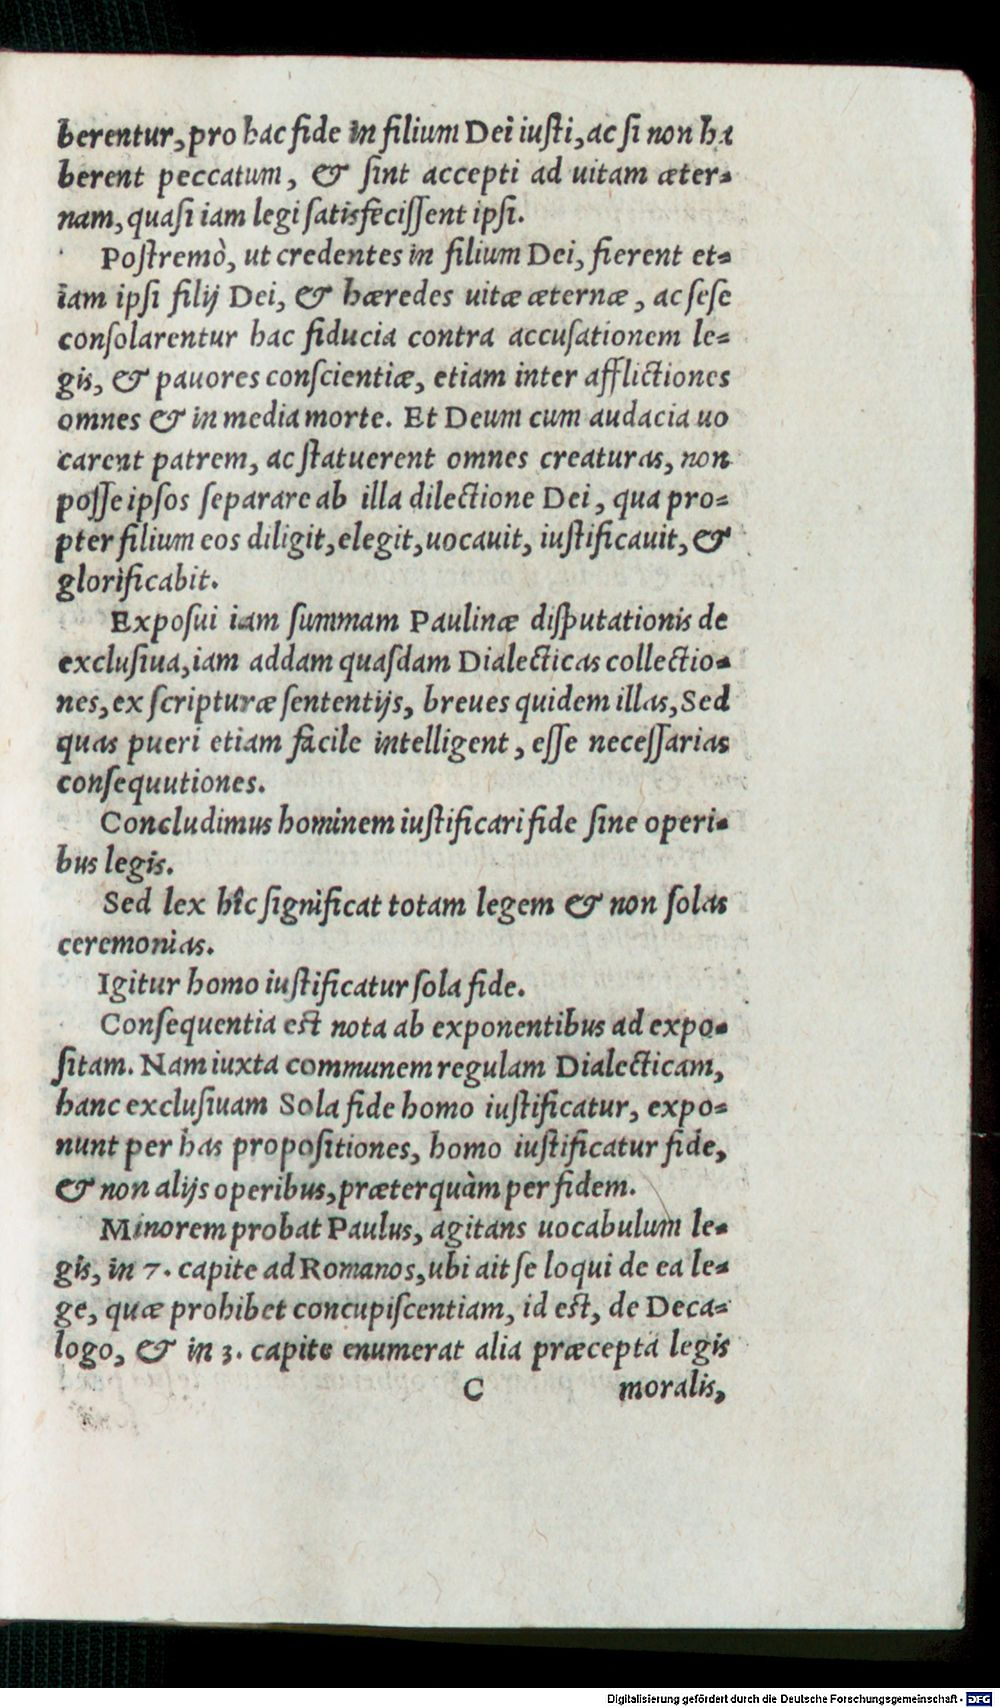 berentur, pro hac fide in filium Dei iusti, ac si non ha
berent peccatum, & sint accepti ad uitam æter-
nam, quasi iam legi satisfecissent ipsi.
Postremò, ut credentes in filium Dei, fierent et-
iam ipsi filij Dei, & hæredes uitæ æternæ, ac sese
consolarentur hac fiducia contra accusationem le-
gis, & pauores conscientiæ, etiam inter afflictiones
omnes & in media morte. Et Deum cum audacia uo
carent patrem, ac statuerent omnes creaturas, non
posse ipsos separare ab illa dilectione Dei, qua pro-
pter filium eos diligit, elegit, uocauit, iustificauit, &
glorificabit.
Exposui iam summam Paulinæ disputationis de
exclusiua, iam addam quasdam Dialecticas collectio-
nes, ex scripturæ sententijs, breues quidem illas, Sed
quas pueri etiam facile intelligent, esse necessarias
consequutiones.
Concludimus hominem iustificari fide sine operi-
bus legis.
Sed lex hîc significat totam legem & non solas
ceremonias.
Igitur homo iustificatur sola fide.
Consequentia est nota ab exponentibus ad expo-
sitam. Nam iuxta communem regulam Dialecticam,
hanc exclusiuam Sola fide homo iustificatur, expo-
nunt per has propositiones, homo iustificatur fide,
& non alijs operibus, præterquàm per fidem.
Minorem probat Paulus, agitans uocabulum le-
gis, in 7. capite ad Romanos, ubi ait se loqui de ea le-
ge, quæ prohibet concupiscentiam, id est, de Deca-
logo, & in 3. capite enumerat alia præcepta legis
C moralis,
Digitalisierung gefördert durch die Deutsche Forschungsgemeinschaft - DFG